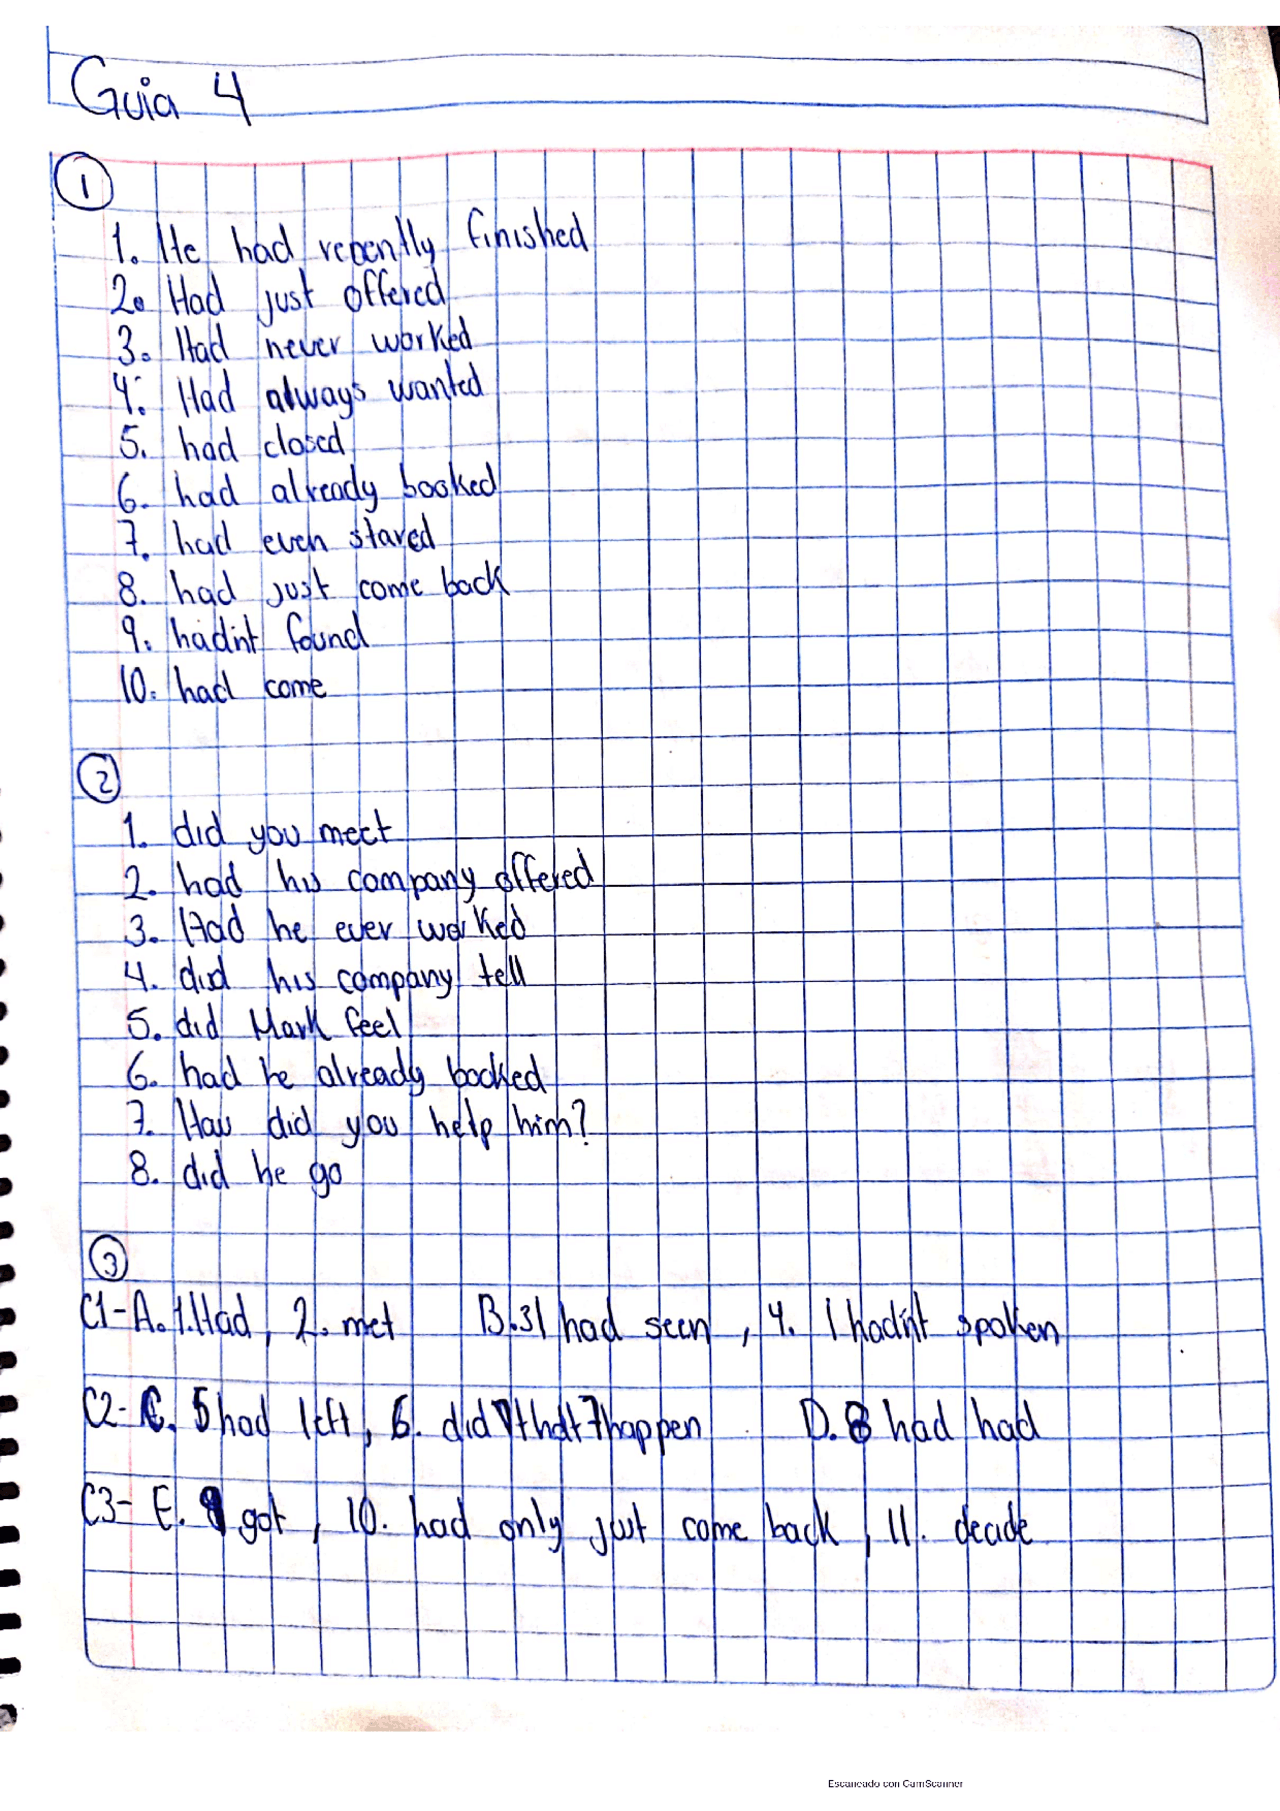 Guia 4
1
1. He had recently finished
2. Had just offered
3. Had never worked
4. Had always wanted
5. had closed
6. had already booked
7. had even stared
8. had just come back
9. hadin't found
10. had come
2
1. did you meet
2. had his company offered
3. Had he ever worked
4. did his company tell
5. did Mark feel
6. had he already booked
7. How did you help him?
8. did he go
3
C1-A. 1. Had, 2. met B. 3 I had seen, 4. I hadin't spoken
C2-C. 5 had left, 6. did that 7 happen D. 8 had had
C3- E. 9 got, 10. had only just come back, 11. decide
Escaneado con CamScanner